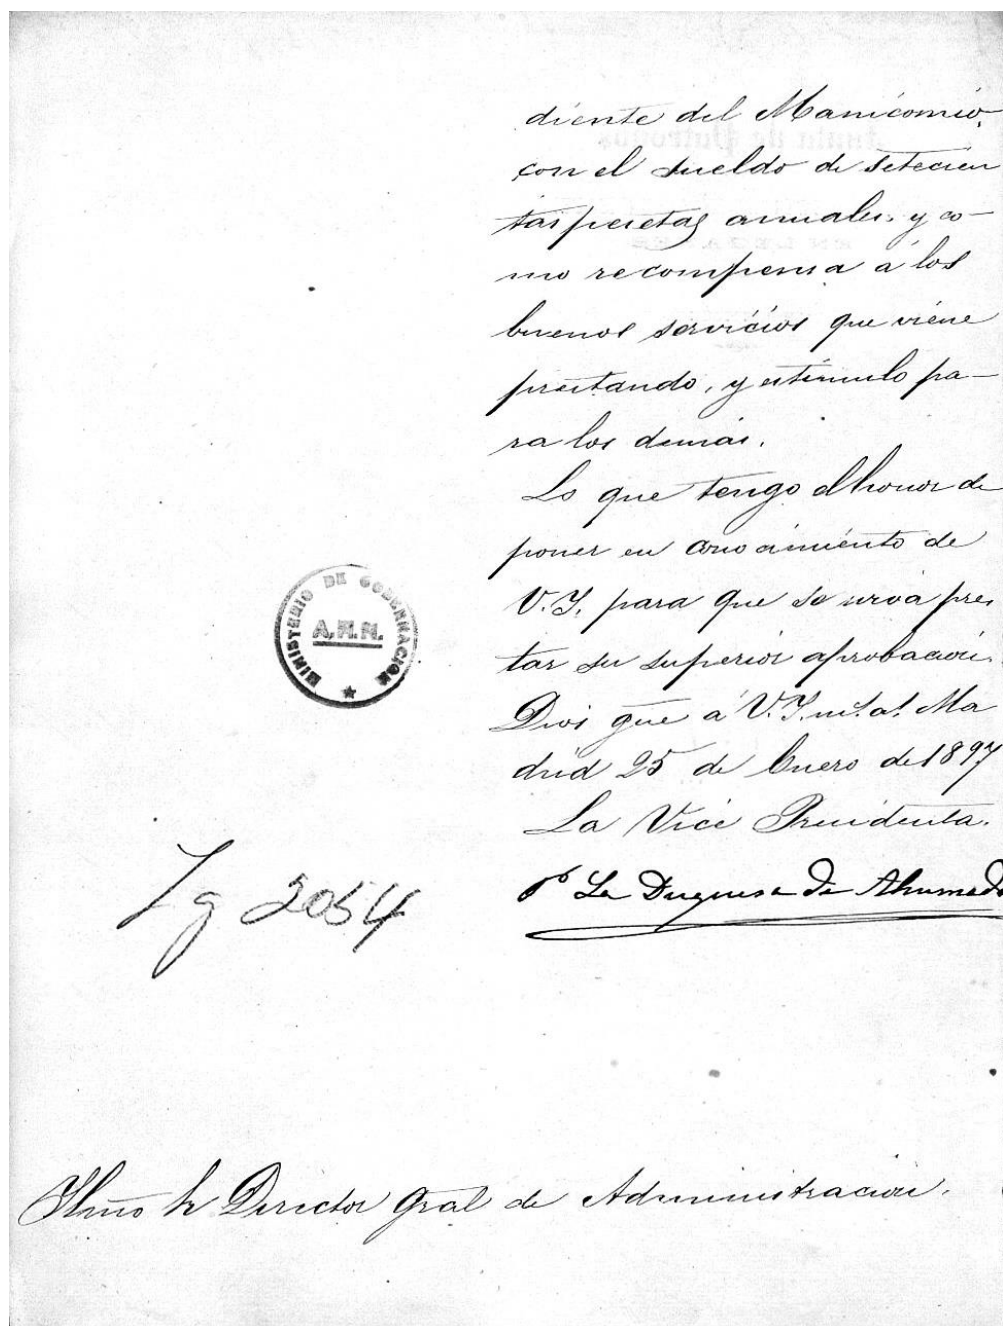 diente del Manicomio,
con el sueldo de setecien
tas pesetas anuales, y co-
mo recompensa á los
buenos servicios que viene
prestando, y estimulo pa-
ra los demás.
Lo que tengo el honor de
poner en conocimiento de
V.I. para que se sirva pres
tar su superior aprobación.
Dios gue á V.I. ms. as. Ma
drid 25 de Enero de 1897
La Vice Presidenta.
La Duquesa de Ahumada
MINISTERIO DE GOBERNACION
A.H.N.
Lg 2054
Ilmo Sr Director Gral de Administración.